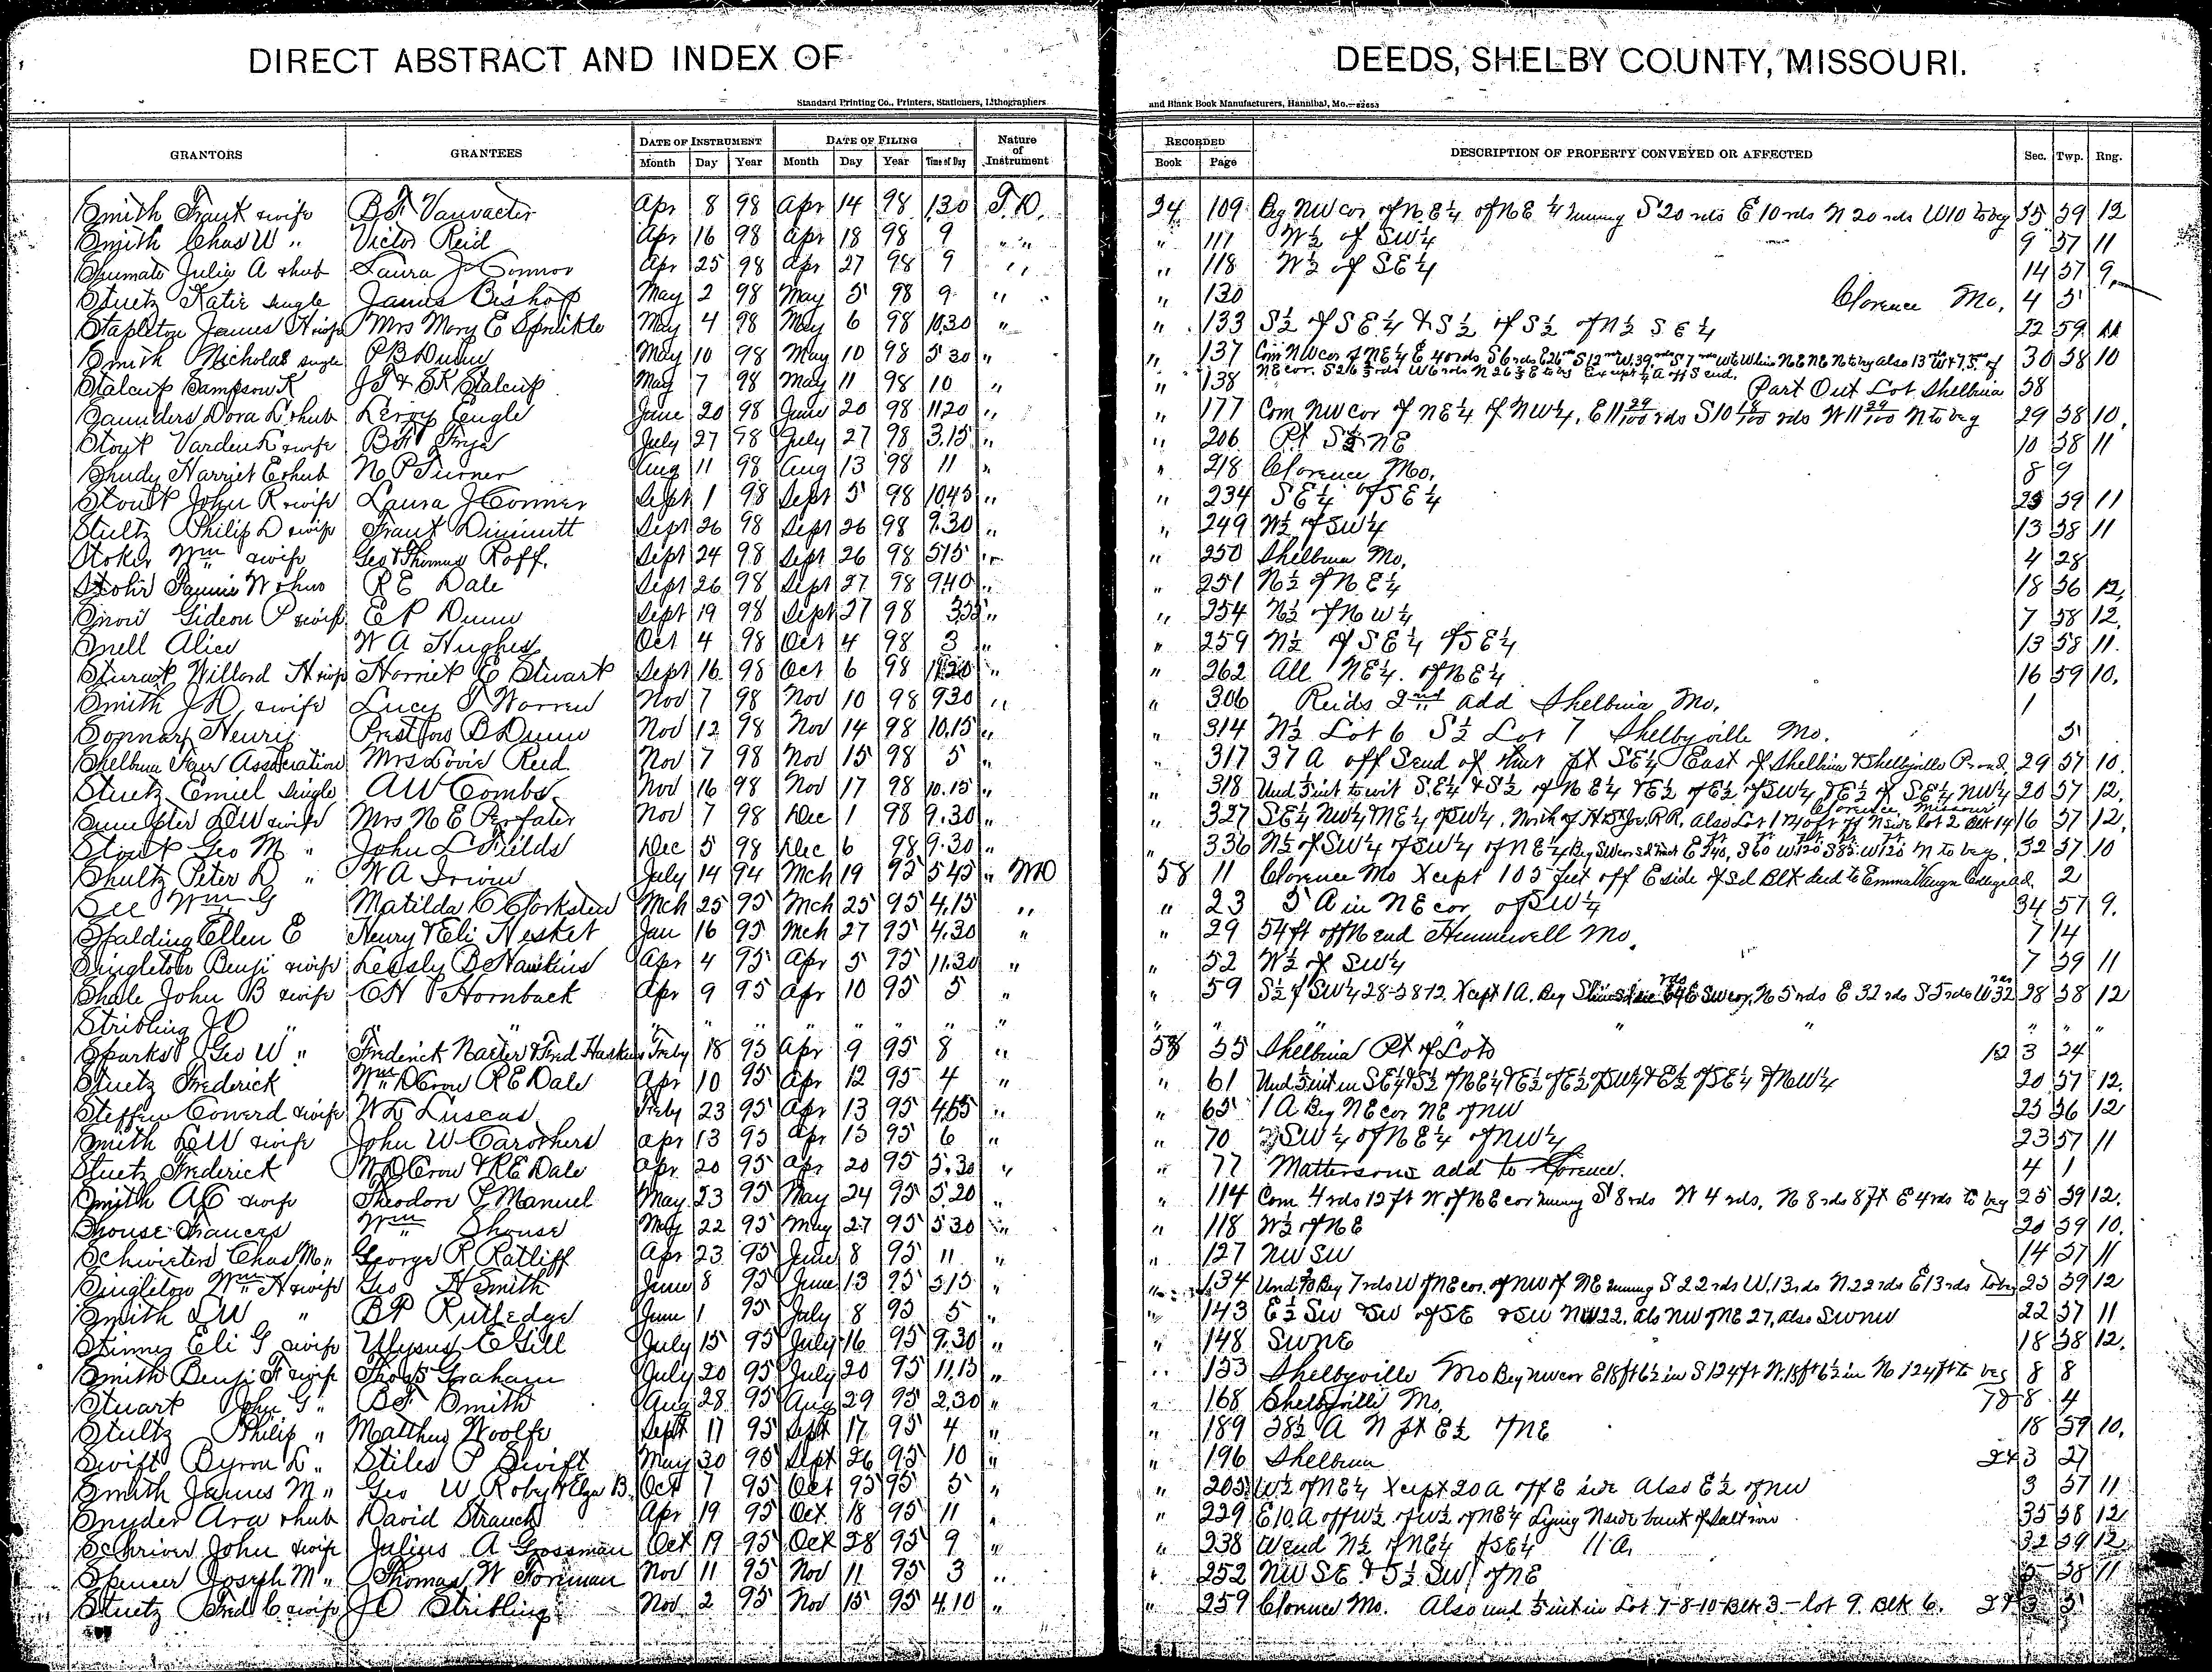 DIRECT ABSTRACT AND INDEX OF DEEDS, SHELBY COUNTY, MISSOURI.
Standard Printing Co., Printers, Stationers, Lithographers and Blank Book Manufacturers, Hannibal, Mo.
GRANTORS GRANTEES DATE OF INSTRUMENT DATE OF FILING Nature of Instrument RECORDED DESCRIPTION OF PROPERTY CONVEYED OR AFFECTED Sec. Twp. Rng.
Month Day Year Month Day Year Time of Day Book Page
Smith Frank & wife B.F. Vanvacter Apr 8 98 Apr 14 98 1.30 T.D. 24 109 Beg NW cor of N.E¼ of NE ¼ running S 20 rds E 10 rds N 20 rds W10 to beg 35 59 12
Smith Chas W " Victor Reid Apr 16 98 Apr 18 98 9 " " " 111 W½ of SW¼ 9 57 11
Shumate Julia A & hub Laura J Connor Apr 25 98 Apr 27 98 9 " " 118 W½ of SE¼ 14 57 9
Stuetz Katie single James Bishop May 2 98 May 5 98 9 " " 130 Clarence Mo. 4 5
Stapleton James H & wife Mrs Mary E Sprinkle May 4 98 May 6 98 10.30 " " 133 S½ of SE¼ & S½ of S½ of N½ SE¼ 22 59 11
Smith Nicholas single P B Dunn May 10 98 May 10 98 5 30 " " 137 Com NW cor of NE¼ E 40 rds S 6 rds 30 58 10
Stalcup Sampson K J T & S K Stalcup May 7 98 May 11 98 10 " " 138 Part Out Lot Shelbina 38
Saunders Dora L & hub Leroy Engle June 20 98 June 20 98 11 20 " " 177 Com NW cor of NE¼ of NW¼, E 11 29/100 rds S 10 18/100 rds W 11 29/100 N to beg 29 58 10
Stoyt Varden K & wife B F July 27 98 July 27 98 3.15 " " 206 Pt S½ NE 10 58 11
Shudy Harriet E & hub N P Turner Aug 11 98 Aug 13 98 11 " " 218 Clarence Mo. 8 9
Stout John R & wife Laura J Conner Sept 1 98 Sept 5 98 10 45 " " 234 SE¼ of SE¼ 25 59 11
Stultz Philip D & wife Frank Dimmitt Sept 26 98 Sept 26 98 9.30 " " 249 N½ of SW¼ 13 58 11
Stoker Wm & wife Geo & Thomas Roff. Sept 24 98 Sept 26 98 5 15 " " 250 Shelbina Mo. 4 28
Stohr Fannie W & hus R E Dale Sept 26 98 Sept 27 98 9 40 " " 251 N½ of N.E¼ 18 56 12
Snow Gideon P & wife E P Dunn Sept 19 98 Sept 27 98 " " 254 N½ of NW¼ 7 58 12
Snell Alice W A Hughes Oct 4 98 Oct 4 98 3 " " 259 N½ of SE¼ of SE¼ 13 58 11
Stuart Willard H & wife Harriet E Stuart Sept 16 98 Oct 6 98 " " 262 All NE¼ of NE¼ 16 59 10
Smith J D & wife Lucy T Warren Nov 7 98 Nov 10 98 9 30 " " 306 Reids 2nd add Shelbina Mo. 1
Henry Preston B Dunn Nov 12 98 Nov 14 98 10.15 " " 314 N½ Lot 6 S½ Lot 7 Shelbyville Mo. 5
Shelbina Fair Association Mrs Lovie Reid Nov 7 98 Nov 15 98 5 " 317 37 A off S end of that pt SE¼ East of Shelbina & Shelbyville Road 29 57 10
Stuetz Emiel single A W Combs Nov 16 98 Nov 17 98 10.15 " " 318 Und ⅕ int to wit S.E¼ & S½ of NE¼ & E½ of E½ of SW¼ & E½ of SE¼ NW¼ 20 57 12
Sumpter L W & wife Mrs N E Perfater Nov 7 98 Dec 1 98 9.30 " " 327 SE¼ NW¼ & NE¼ of SW¼. North of H & St Jo. R.R. Also Lot 1 & 40 ft off N side lot 2 Blk 14 Clarence Missouri 16 57 12
Stout Geo M " John L Fields Dec 5 98 Dec 6 98 9.30 " " 336 N½ of SW¼ of SW¼ of NE¼ 32 57 10
Shultz Peter D " W A Irwin July 14 94 Mch 19 95 5 45 " MO 58 11 Clarence Mo Xcept 105 feet off E side of sd Blk deed to Emma Vaugn College ad. 2
See Wm G Matilda C Clarkston Mch 25 95 Mch 25 95 4.15 " " 23 5 A in NE cor of SW¼ 34 57 9
Spalding Ellen E Henry & Eli Hesket Jan 16 95 Mch 27 95 4.30 " " 29 54 ft off N end Hunnewell Mo. 7 14
Singleton Benj & wife Leesly B Hawkins Apr 4 95 Apr 5 95 11.30 " " 52 W½ of SW¼ 7 59 11
Shale John B & wife C H Hornback Apr 9 95 Apr 10 95 5 " " 59 S½ of SW¼ 28-58-12, Xcept 1 A. Beg SW cor, N 5 rds E 32 rds S 5 rds W 32 28 58 12
Stribling J O " " " " " " " " " " " " " " "
Sparks Geo W " Frederick Naeter & Fred Harkins Feby 18 95 Apr 9 95 8 " 58 55 Shelbina Pt of Lots 12 3 24
Stuetz Frederick Wm D Crow R E Dale Apr 10 95 Apr 12 95 4 " " 61 Und ⅕ int in SE¼ & S½ of NE¼ & E½ of E½ of SW¼ & E½ of SE¼ of NW¼ 20 57 12
Steffen Coward & wife W L Luscas Feby 23 95 Apr 13 95 " " 65 1 A Beg NE cor NE of NW 25 56 12
Smith L W & wife John W Carothers Apr 13 95 Apr 13 95 6 " " 70 SW¼ of NE¼ of NW¼ 23 57 11
Stuetz Frederick W D Crow & R E Dale Apr 20 95 Apr 20 95 5.30 " " 77 Mattersons add to Clarence. 4 1
Smith A C & wife Theodore P Manuel May 23 95 May 24 95 5.20 " " 114 Com 4 rds 12 ft W of NE cor running S 8 rds W 4 rds, N 8 rds 8 ft E 4 rds to beg 25 59 12
Shouse Frances Wm Shouse May 22 95 May 27 95 5 30 " " 118 W½ of NE 20 59 10
Schwieters Chas M " George R Ratliff Apr 23 95 June 8 95 11 " " 127 NW SW 14 57 11
Singleton Wm H & wife Geo H Smith June 8 95 June 13 95 5.15 " " 134 Und ½ Beg 7 rds W of NE cor. of NW of NE running S 22 rds W. 13 rds N. 22 rds E 13 rds to beg 25 59 12
Smith L W " B P Rutledge June 1 95 July 8 95 5 " " 143 E½ SW & SW of SE & SW NW 22. als NW of NE 27, also SW NW 22 57 11
Stinney Eli G & wife Ulysus E Gill July 15 95 July 16 95 9.30 " " 148 SW NE 18 58 12
Smith Benj F & wife Thos B Graham July 20 95 July 20 95 11.15 " " 153 Shelbyville Mo Beg nw cor E 18 ft 6½ in S 124 ft W. 18 ft 6½ in N 124 ft to beg 8 8
Stuart John G " B F Smith Aug 28 95 Aug 29 95 2.30 " " 168 Shelbyville Mo. 7 8 4
Stultz Philip " Matthew Woolfe Sept 17 95 Sept 17 95 4 " " 189 38½ A N pt E½ of NE 18 59 10
Swift Byron L " Stiles P Swift May 30 95 Sept 26 95 10 " " 196 Shelbina 2 & 3 27
Smith James M " Geo W Roby & Elza B. Oct 7 95 Oct 95 5 " " 205 W½ of NE¼ Xcept 20 a off E side Also E½ of NW 3 57 11
Snyder Ara & hub David Strauch Apr 19 95 Oct 18 95 11 " " 229 E 10 A off W½ of W½ of NE¼ Lying N side bank of Salt river 35 58 12
Schriver John & wife Julius A Grossman Oct 19 95 Oct 28 95 9 " " 238 W end N½ of NE¼ of SE¼ 11 A. 32 59 12
Spencer Joseph M " Thomas W Foreman Nov 11 95 Nov 11 95 3 " " 252 NW SE & S½ SW of NE 5 58 11
Stuetz Fred C & wife J O Stribling Nov 2 95 Nov 15 95 4.10 " " 259 Clarence Mo. Also und ⅕ int in Lot 7-8-10-Blk 3 - lot 9. Blk 6.